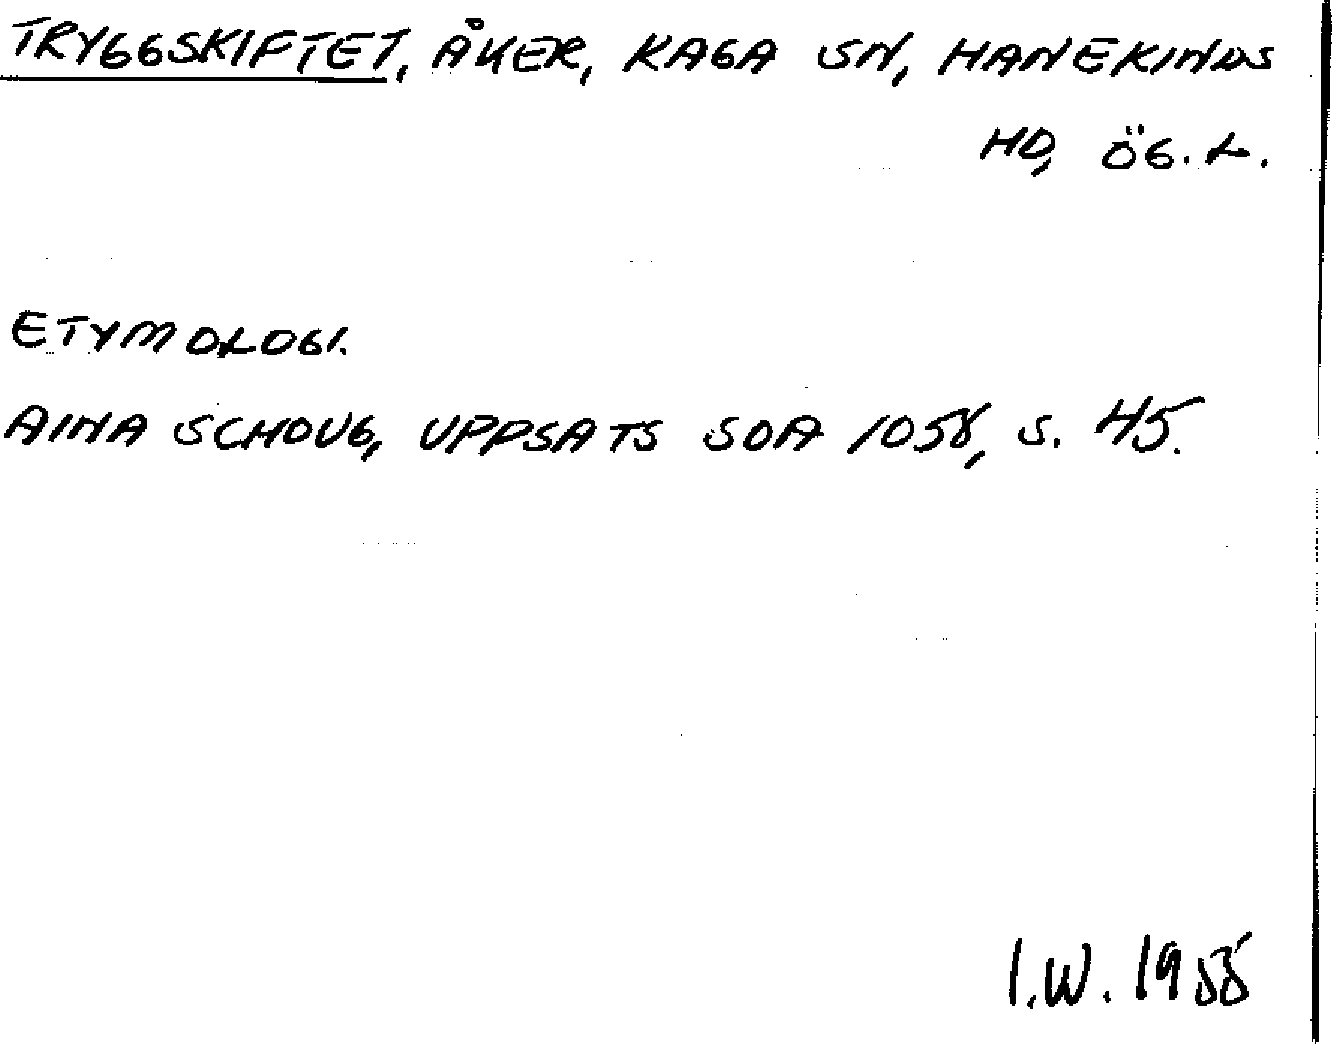 TRYGGSKIFTET, ÅKER, KAGA SN, HANEKINDS
HD, ÖG. L.
ETYMOLOGI.
AINA SCHOUG, UPPSATS SOA 1058, S. 45.
I.W. 1955